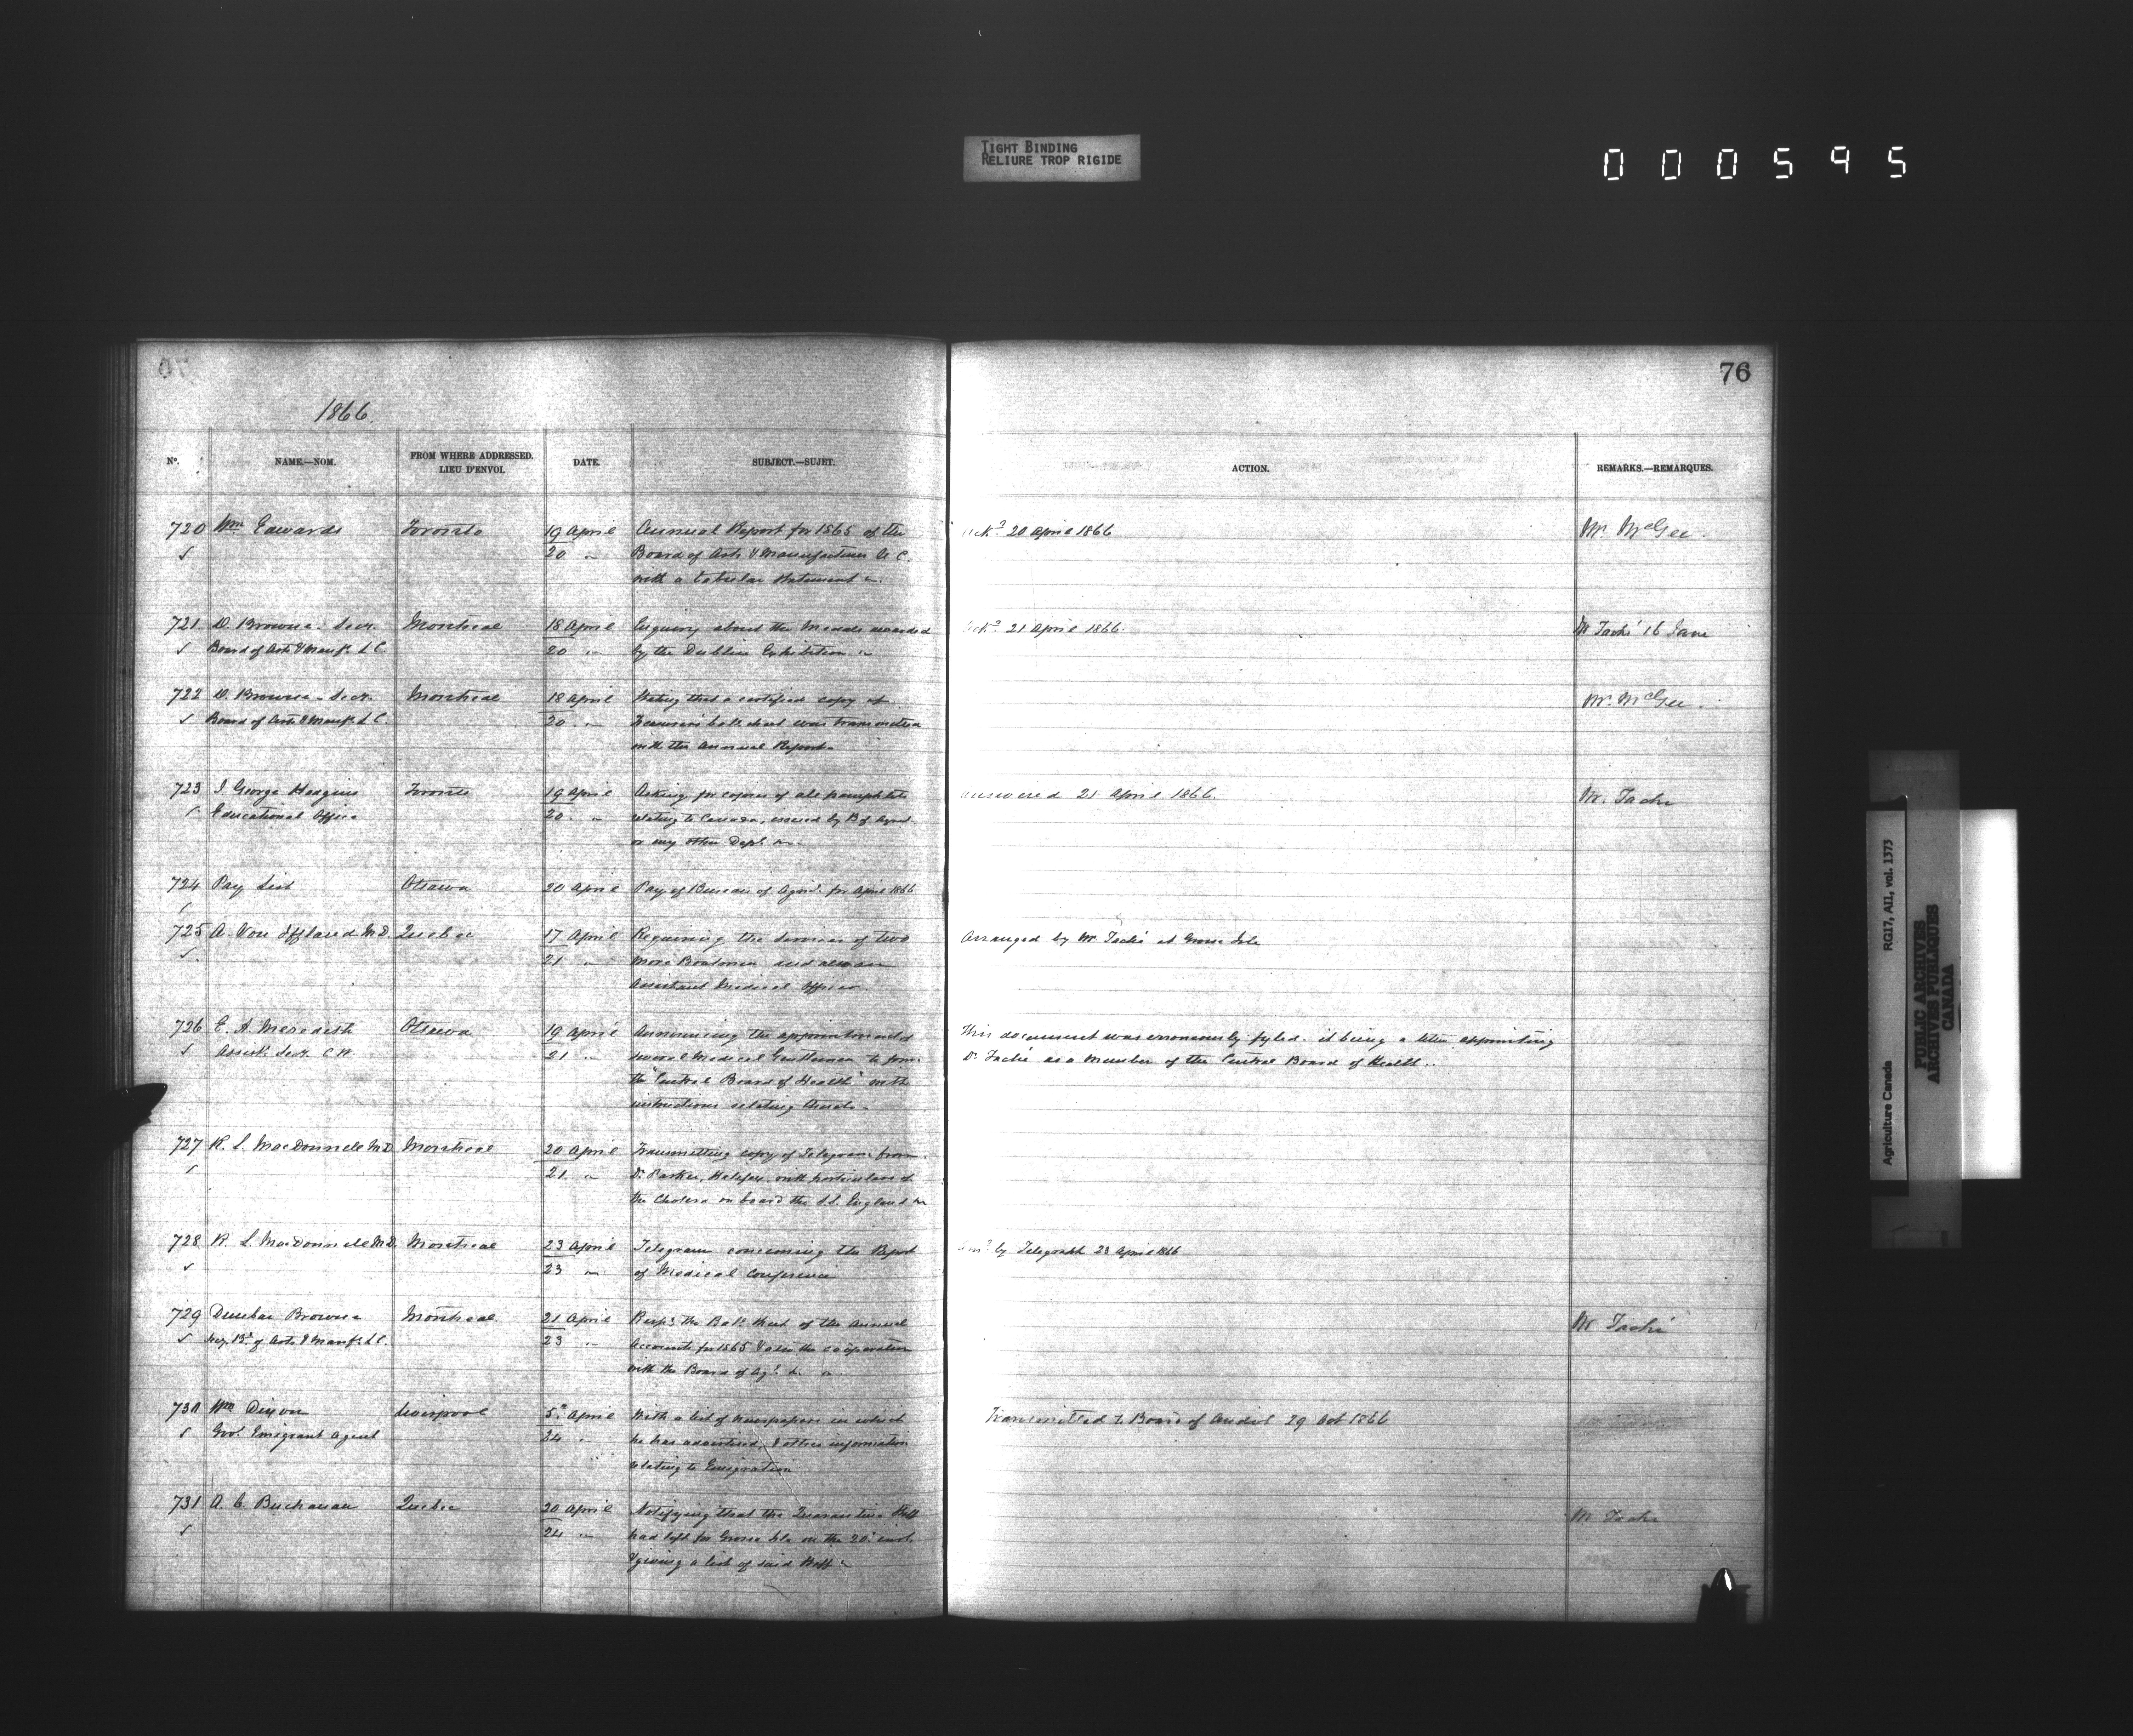 TIGHT BINDING
RELIURE TROP RIGIDE
000595
76
1866.
No. NAME.—NOM. FROM WHERE ADDRESSED. LIEU D'ENVOI. DATE. SUBJECT.—SUJET. ACTION. REMARKS.—REMARQUES.
720 Wm Edwards Toronto 19 April Annual Report for 1865 of the Ackd 20 April 1866 Mr. McGee
20 " Board of Arts & Manufactures U C.
with a tabular Statement
721 D. Browne - Secy. Montreal 18 April Enquiry about the Medals awarded Ackd 21 April 1866. Mr Taché 16 June
Board of Arts & Manufs L C. 20 " by the Dublin Exhibition
722 D. Browne - Secy. Montreal 18 April Stating that a certified copy of Mr. McGee
Board of Arts & Manufs L C. 20 " was transmitted
with the Annual Report
723 J. George Hodgins Toronto 19 April Asking for copies of all pamphlets answered 21 April 1866. Mr. Taché
Educational Office 20 " relating to Canada, issued by B of Agric.
or any other Dept
724 Pay List Ottawa 20 April Pay of Bureau of Agric. for April 1866
725 A. Von Iffland M.D. Quebec 17 April Requiring the services of two Arranged by Mr Taché at Grosse Isle
21 " more Boatmen and also an
Assistant Medical Officer
726 E. A. Meredith Ottawa 19 April Announcing the appointment of This document was erroneously fyled. it being a letter appointing
Assist. Secy. C.W. 21 " several Medical Gentlemen to form Dr. Taché as a Member of the Central Board of Health..
the "Central Board of Health" with
instructions relating thereto
727 R. L. MacDonnell M.D Montreal 20 April Transmitting copy of Telegram from
21 " Dr. Parker, Halifax, with particulars of
the Cholera on board the S.S. England
728 R. L. MacDonnell M.D. Montreal 23 April Telegram concerning the Report Ansd by Telegraph 23 April 1866
23 " of Medical Conference
729 Dunbar Browne Montreal 21 April the Bal. Sheet of the Annual Mr Taché
Secy. Bd of Arts & Manufs L C. 23 " Accounts for 1865 & also the coöperation
with the Board of
730 Wm Dixon Liverpool 5 April With a list of newspapers in which Transmitted to Board of Audit 29 Oct 1866
Govt. Emigrant Agent 24 " he has advertised, & other information
relating to Emigration
731 A. C. Buchanan Quebec 20 April Notifying that the Quarantine Staff Mr Taché
24 " had left for Grosse Isle on the 20th inst.
& giving a list of said Staff
Agriculture Canada RG17, AII, vol. 1373
PUBLIC ARCHIVES
ARCHIVES PUBLIQUES
CANADA